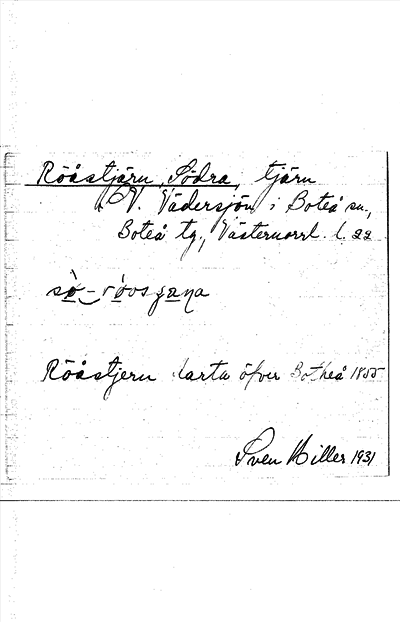 Rööstjärn, Södra, tjärn
V. Vädersjön i Boteå sn.,
Boteå tg., Västernorrl. l. 22
sò-róosʒæna
Rööstjern karta öfver Botheå 1855
Sven Hiller 1931